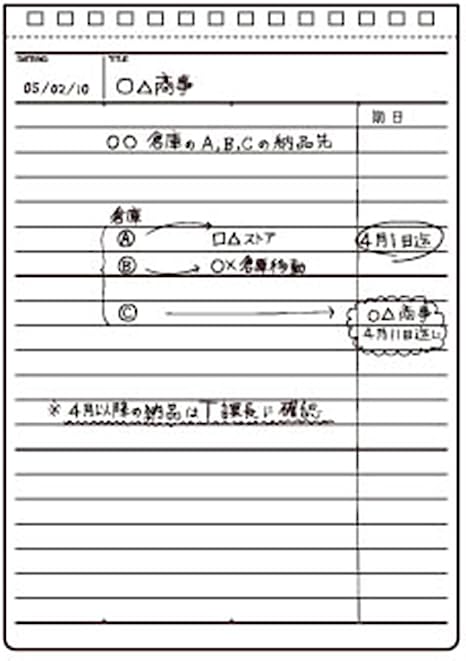 TITLE
05/02/10 ○△商事
期日
○○ 倉庫のA,B,Cの納品先
倉庫
Ⓐ □△ストア 4月1日迄
Ⓑ ○×倉庫移動
Ⓒ ○△商事
4月11日迄に
※ 4月以降の納品はT課長に確認